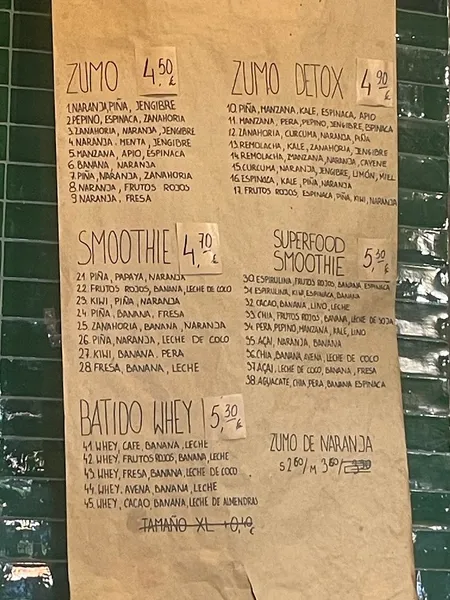 ZUMO 4.50€
1.NARANJA, PIÑA, JENGIBRE
2.PEPINO, ESPINACA, ZANAHORIA
3.ZANAHORIA, NARANJA, JENGIBRE
4.NARANJA, MENTA, JENGIBRE
5.MANZANA, APIO, ESPINACA
6.BANANA, NARANJA
7.PIÑA, NARANJA, ZANAHORIA
8.NARANJA, FRUTOS ROJOS
9.NARANJA, FRESA
ZUMO DETOX 4.90€
10.PIÑA, MANZANA, KALE, ESPINACA, APIO
11.MANZANA, PERA, PEPINO, JENGIBRE, ESPINACA
12.ZANAHORIA, CURCUMA, NARANJA, PIÑA
13.REMOLACHA, KALE, ZANAHORIA, JENGIBRE
14.REMOLACHA, MANZANA, NARANJA, CAYENE
15.CURCUMA, NARANJA, JENGIBRE, LIMÓN, MIEL
16.ESPINACA, KALE, PIÑA, NARANJA
17.FRUTOS ROJOS, ESPINACA, PIÑA, KIWI, NARANJA
SMOOTHIE 4.70€
21.PIÑA, PAPAYA, NARANJA
22.FRUTOS ROJOS, BANANA, LECHE DE COCO
23.KIWI, PIÑA, NARANJA
24.PIÑA, BANANA, FRESA
25.ZANAHORIA, BANANA, NARANJA
26.PIÑA, NARANJA, LECHE DE COCO
27.KIWI, BANANA, PERA
28.FRESA, BANANA, LECHE
SUPERFOOD
SMOOTHIE 5.30€
30.ESPIRULINA, FRUTOS ROJOS, BANANA, ESPINACA
31.ESPIRULINA, KIWI, ESPINACA, BANANA
32.CACAO, BANANA, LINO, LECHE
33.CHIA, FRUTOS ROJOS, BANANA, LECHE DE SOJA
34.PERA, PEPINO, MANZANA, KALE, LINO
35.AÇAI, NARANJA, BANANA
36.CHIA, BANANA, AVENA, LECHE DE COCO
37.AÇAI, LECHE DE COCO, BANANA, FRESA
38.AGUACATE, CHIA, PERA, BANANA, ESPINACA
BATIDO WHEY 5.30€
41.WHEY, CAFE, BANANA, LECHE
42.WHEY, FRUTOS ROJOS, BANANA, LECHE
43.WHEY, FRESA, BANANA, LECHE DE COCO
44.WHEY, AVENA, BANANA, LECHE
45.WHEY, CACAO, BANANA, LECHE DE ALMENDRAS
TAMAÑO XL +0,40€
ZUMO DE NARANJA
S 2.60/M 3.60/